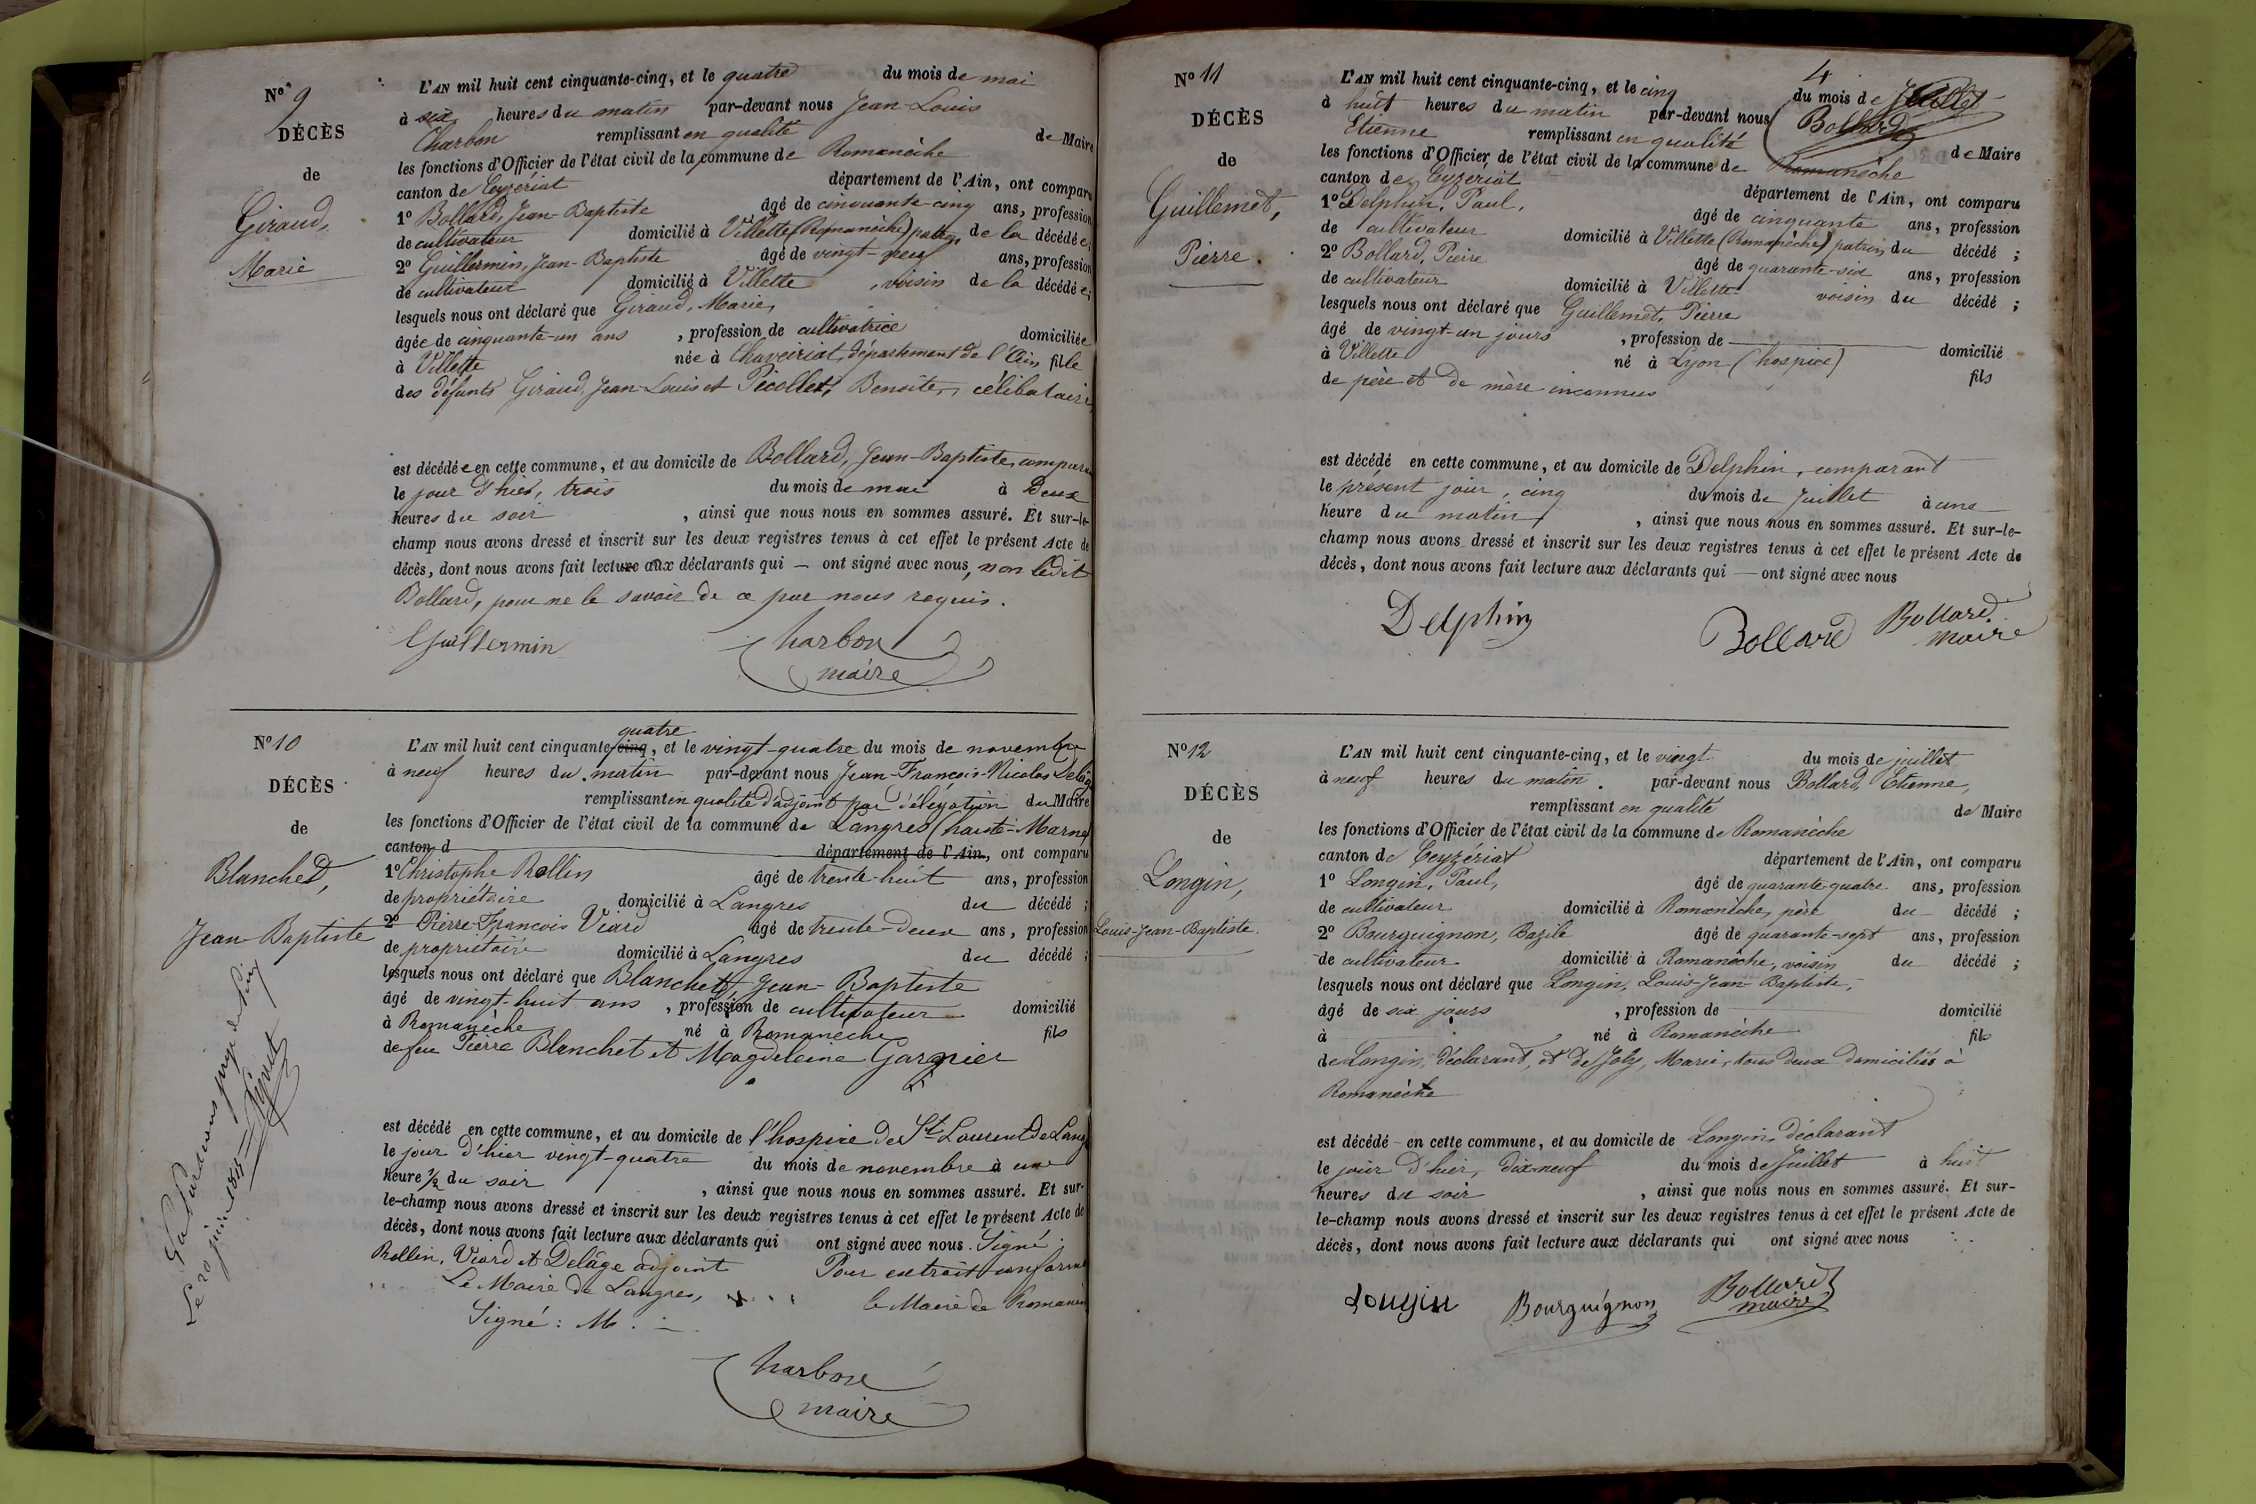 N° 9
DÉCÈS
de
Giraud,
Marie
L'AN mil huit cent cinquante-cinq, et le quatre du mois de mai
à six heures du matin par-devant nous Jean-Louis
Charbon remplissant en qualité de Maire
les fonctions d'Officier de l'état civil de la commune de Romanèche
canton de Ceyzériat département de l'Ain, ont comparu
1° Bollard, Jean-Baptiste âgé de cinquante-cinq ans, profession
de cultivateur domicilié à Villette (Romanèche) de la décédée;
2° Guillermin, Jean-Baptiste âgé de vingt-neuf ans, profession
de cultivateur domicilié à Villette, voisin de la décédée;
lesquels nous ont déclaré que Giraud, Marie,
âgée de cinquante-un ans, profession de cultivatrice domiciliée
à Villette née à Chaveiriat, département de l'Ain fille
des défunts Giraud, Jean-Louis et Picollet, Benoîte, célibataire,
est décédée en cette commune, et au domicile de Bollard, Jean-Baptiste, comparant
le jour d'hier, trois du mois de mai à Deux
heures du soir, ainsi que nous nous en sommes assuré. Et sur-le-
champ nous avons dressé et inscrit sur les deux registres tenus à cet effet le présent Acte de
décès, dont nous avons fait lecture aux déclarants qui — ont signé avec nous, non ledit
Bollard, pour ne le savoir de ce par nous requis.
Guillermin Charbon
maire
N° 10
DÉCÈS
de
Blanchet,
Jean-Baptiste
quatre
L'AN mil huit cent cinquante-cinq, et le vingt-quatre du mois de novembre
à neuf heures du matin par-devant nous Jean-François-Nicolas Delâge
remplissant en qualité d'adjoint par délégation du Maire
les fonctions d'Officier de l'état civil de la commune de Langres (haute-Marne)
canton d département de l'Ain, ont comparu
1° Christophe Rollin âgé de trente-huit ans, profession
de propriétaire domicilié à Langres du décédé;
2° Pierre-François Viard âgé de trente-Deux ans, profession
de propriétaire domicilié à Langres du décédé;
lesquels nous ont déclaré que Blanchet, Jean-Baptiste
âgé de vingt-huit ans, profession de cultivateur domicilié
à Romanèche né à Romanèche fils
de feu Pierre Blanchet et Magdeleine Garnier
est décédé en cette commune, et au domicile de l'hospice de St Laurent de Lang
le jour d'hier vingt-quatre du mois de novembre à une
heure ½ du soir, ainsi que nous nous en sommes assuré. Et sur-
le-champ nous avons dressé et inscrit sur les deux registres tenus à cet effet le présent Acte de
décès, dont nous avons fait lecture aux déclarants qui ont signé avec nous. Signé:
Rollin, Viard et Delâge adjoint Pour extrait conforme
Le Maire de Langres, le Maire de Romanèche
Signé: M.
Charbon
maire
N° 11
DÉCÈS
de
Guillemet,
Pierre.
4
L'AN mil huit cent cinquante-cinq, et le cinq du mois de Juillet
à huit heures du matin par-devant nous Bollard
Etienne remplissant en qualité de Maire
les fonctions d'Officier de l'état civil de la commune de Romanèche
canton de Ceyzériat département de l'Ain, ont comparu
1° Delphin, Paul, âgé de cinquante ans, profession
de cultivateur domicilié à Villette (Romanèche) patron du décédé;
2° Bollard, Pierre âgé de quarante-six ans, profession
de cultivateur domicilié à Villette voisin du décédé;
lesquels nous ont déclaré que Guillemet, Pierre
âgé de vingt-un jours, profession de domicilié
à Villette né à Lyon (hospice) fils
de père et de mère inconnus
est décédé en cette commune, et au domicile de Delphin, comparant
le présent jour, cinq du mois de Juillet à une
heure du matin, ainsi que nous nous en sommes assuré. Et sur-le-
champ nous avons dressé et inscrit sur les deux registres tenus à cet effet le présent Acte de
décès, dont nous avons fait lecture aux déclarants qui — ont signé avec nous
Delphin Bollard Bollard
maire
N° 12
DÉCÈS
de
Longin,
Louis-Jean-Baptiste.
L'AN mil huit cent cinquante-cinq, et le vingt du mois de juillet
à neuf heures du matin par-devant nous Bollard, Etienne,
remplissant en qualité de Maire
les fonctions d'Officier de l'état civil de la commune de Romanèche
canton de Ceyzériat département de l'Ain, ont comparu
1° Longin, Paul, âgé de quarante-quatre ans, profession
de cultivateur domicilié à Romanèche, père du décédé;
2° Bourguignon, Bazile âgé de quarante-sept ans, profession
de cultivateur domicilié à Romanèche, voisin du décédé;
lesquels nous ont déclaré que Longin, Louis-Jean-Baptiste,
âgé de six jours, profession de domicilié
à né à Romanèche fils
de Longin, déclarant, et de Joly, Marie, tous deux domiciliés à
Romanèche
est décédé en cette commune, et au domicile de Longin, déclarant
le jour d'hier, dix-neuf du mois de Juillet à huit
heures du soir, ainsi que nous nous en sommes assuré. Et sur-
le-champ nous avons dressé et inscrit sur les deux registres tenus à cet effet le présent Acte de
décès, dont nous avons fait lecture aux déclarants qui ont signé avec nous
Longin Bourguignon Bollard
maire